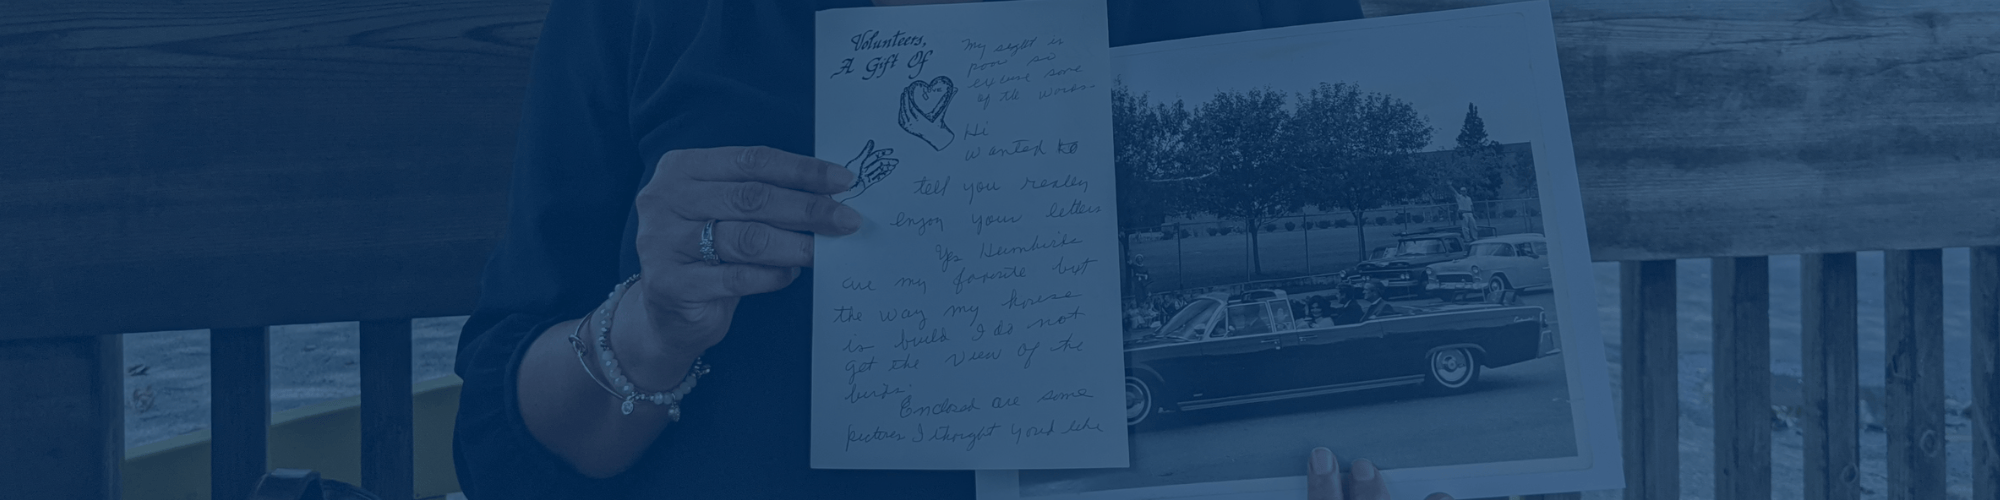 Volunteers,
A Gift Of
My sight is
poor so
excuse some
of the words
Hi
Wanted to
tell you really
enjoy your letters
Yes Humbirds
are my favorite but
the way my house
is build I do not
get the view of the
birds.
Enclosed are some
pictures I thought you'd like